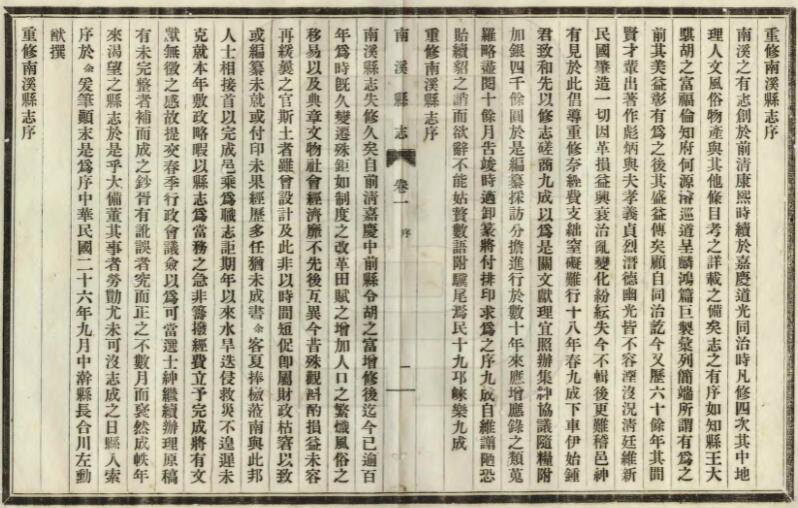 重修南溪縣志序
南溪之有志創於前清康熙時續於嘉慶道光同治時凡修四次其中地
理人文風俗物產與其他條目考之詳載之備矣志之有序如知縣王大
騏胡之富福倫知府何源濬巡道呈麟鴻篇巨製彙列簡端所謂有為之
前其美益彰有為之後其盛益傳矣顧自同治訖今又歷六十餘年其間
賢才輩出著作彪炳與夫孝義貞烈潛德幽光皆不容湮沒況清廷維新
民國肇造一切因革損益興衰治亂變化紛紜失今不輯後更難稽邑紳
有見於此倡導重修奈經費支絀窒礙難行十八年春九成下車伊始鍾
君致和先以修志磋商九成以為是關文獻理宜照辦集紳協議隨糧附
加銀四千餘圓於是編纂採訪分擔進行於數十年來應增應錄之類蒐
羅略盡閱十餘月告竣時適卸篆將付排印求為之序九成自維譾陋恐
貽續貂之誚而欲辭不能姑贅數語附驥尾焉民十九邛崍樂九成
重修南溪縣志序
南溪縣志 卷一 序 一
南溪縣志失修久矣自前清嘉慶中前縣令胡之富增修後迄今已逾百
年為時既久變遷殊鉅如制度之改革田賦之增加人口之繁熾風俗之
移易以及典章文物社會經濟靡不先後互異今昔殊觀斟酌損益未容
再緩曩之官斯土者雖曾設計及此非以時間短促卽屬財政枯窘以致
或編纂未就或付印未果經歷多任猶未成書余客夏捧檄蒞南與此邦
人士相接首以完成邑乘為職志詎期年以來水旱迭侵救災不遑遲未
克就本年敷政略暇以縣志為當務之急非籌撥經費立予完成將有文
獻無徵之感故提交春季行政會議僉以為可當選士紳繼續辦理原稿
有未完整者補而成之鈔胥有訛誤者究而正之不數月而裒然成帙年
來渴望之縣志於是乎大備董其事者勞勩尤未可沒志成之日縣人索
序於余爰筆顛末是為序中華民國二十六年九月中澣縣長合川左勳
猷撰
重修南溪縣志序